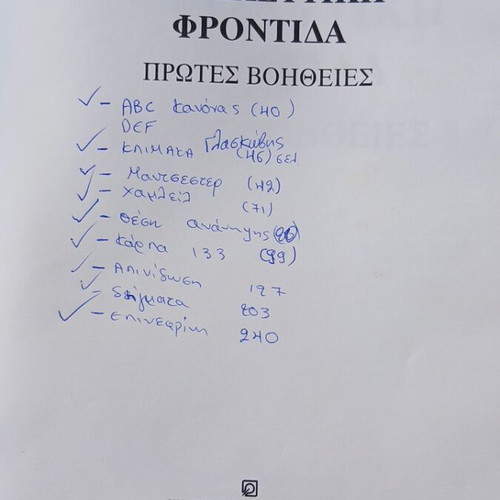 ΦΡΟΝΤΙΔΑ
ΠΡΩΤΕΣ ΒΟΗΘΕΙΕΣ
✓ – ABC κανόνας (40)
DEF
✓ – ΚΛΙΜΑΚΑ Γλασκώβης
(46) σελ
✓ – Μαντσεστερ (42)
✓ – Χαμλείλ (71)
✓ – θέση ανάνηψης
✓ – κάρπα 133 (99)
✓ – Απινίδωση 127
✓ – δήγματα 203
✓ – επινεφρίνη 240